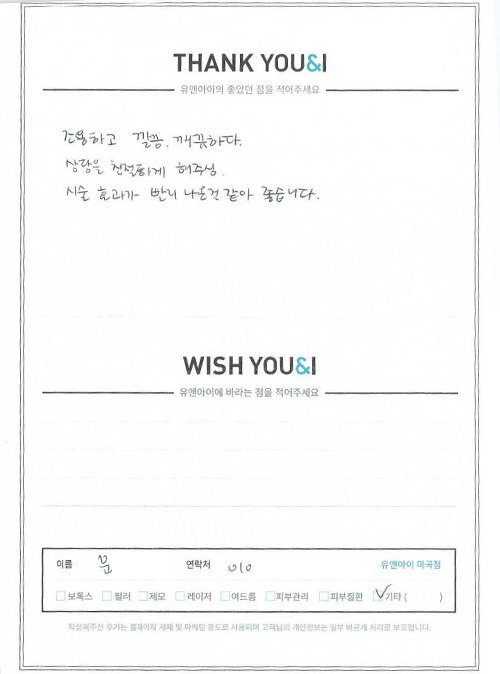 THANK YOU&I
유앤아이의 좋았던 점을 적어주세요
조용하고 깔끔. 깨끗하다.
상담을 친절하게 해주심.
시술 효과가 빨리 나온것 같아 좋습니다.
WISH YOU&I
유앤아이에 바라는 점을 적어주세요
이름 문 연락처 010 유앤아이 마곡점
보톡스 필러 제모 레이저 여드름 피부관리 피부질환 기타 ( )
작성해주신 후기는 홈페이지 게재 및 마케팅 용도로 사용되며 고객님의 개인정보는 일부 비공개 처리로 보호됩니다.